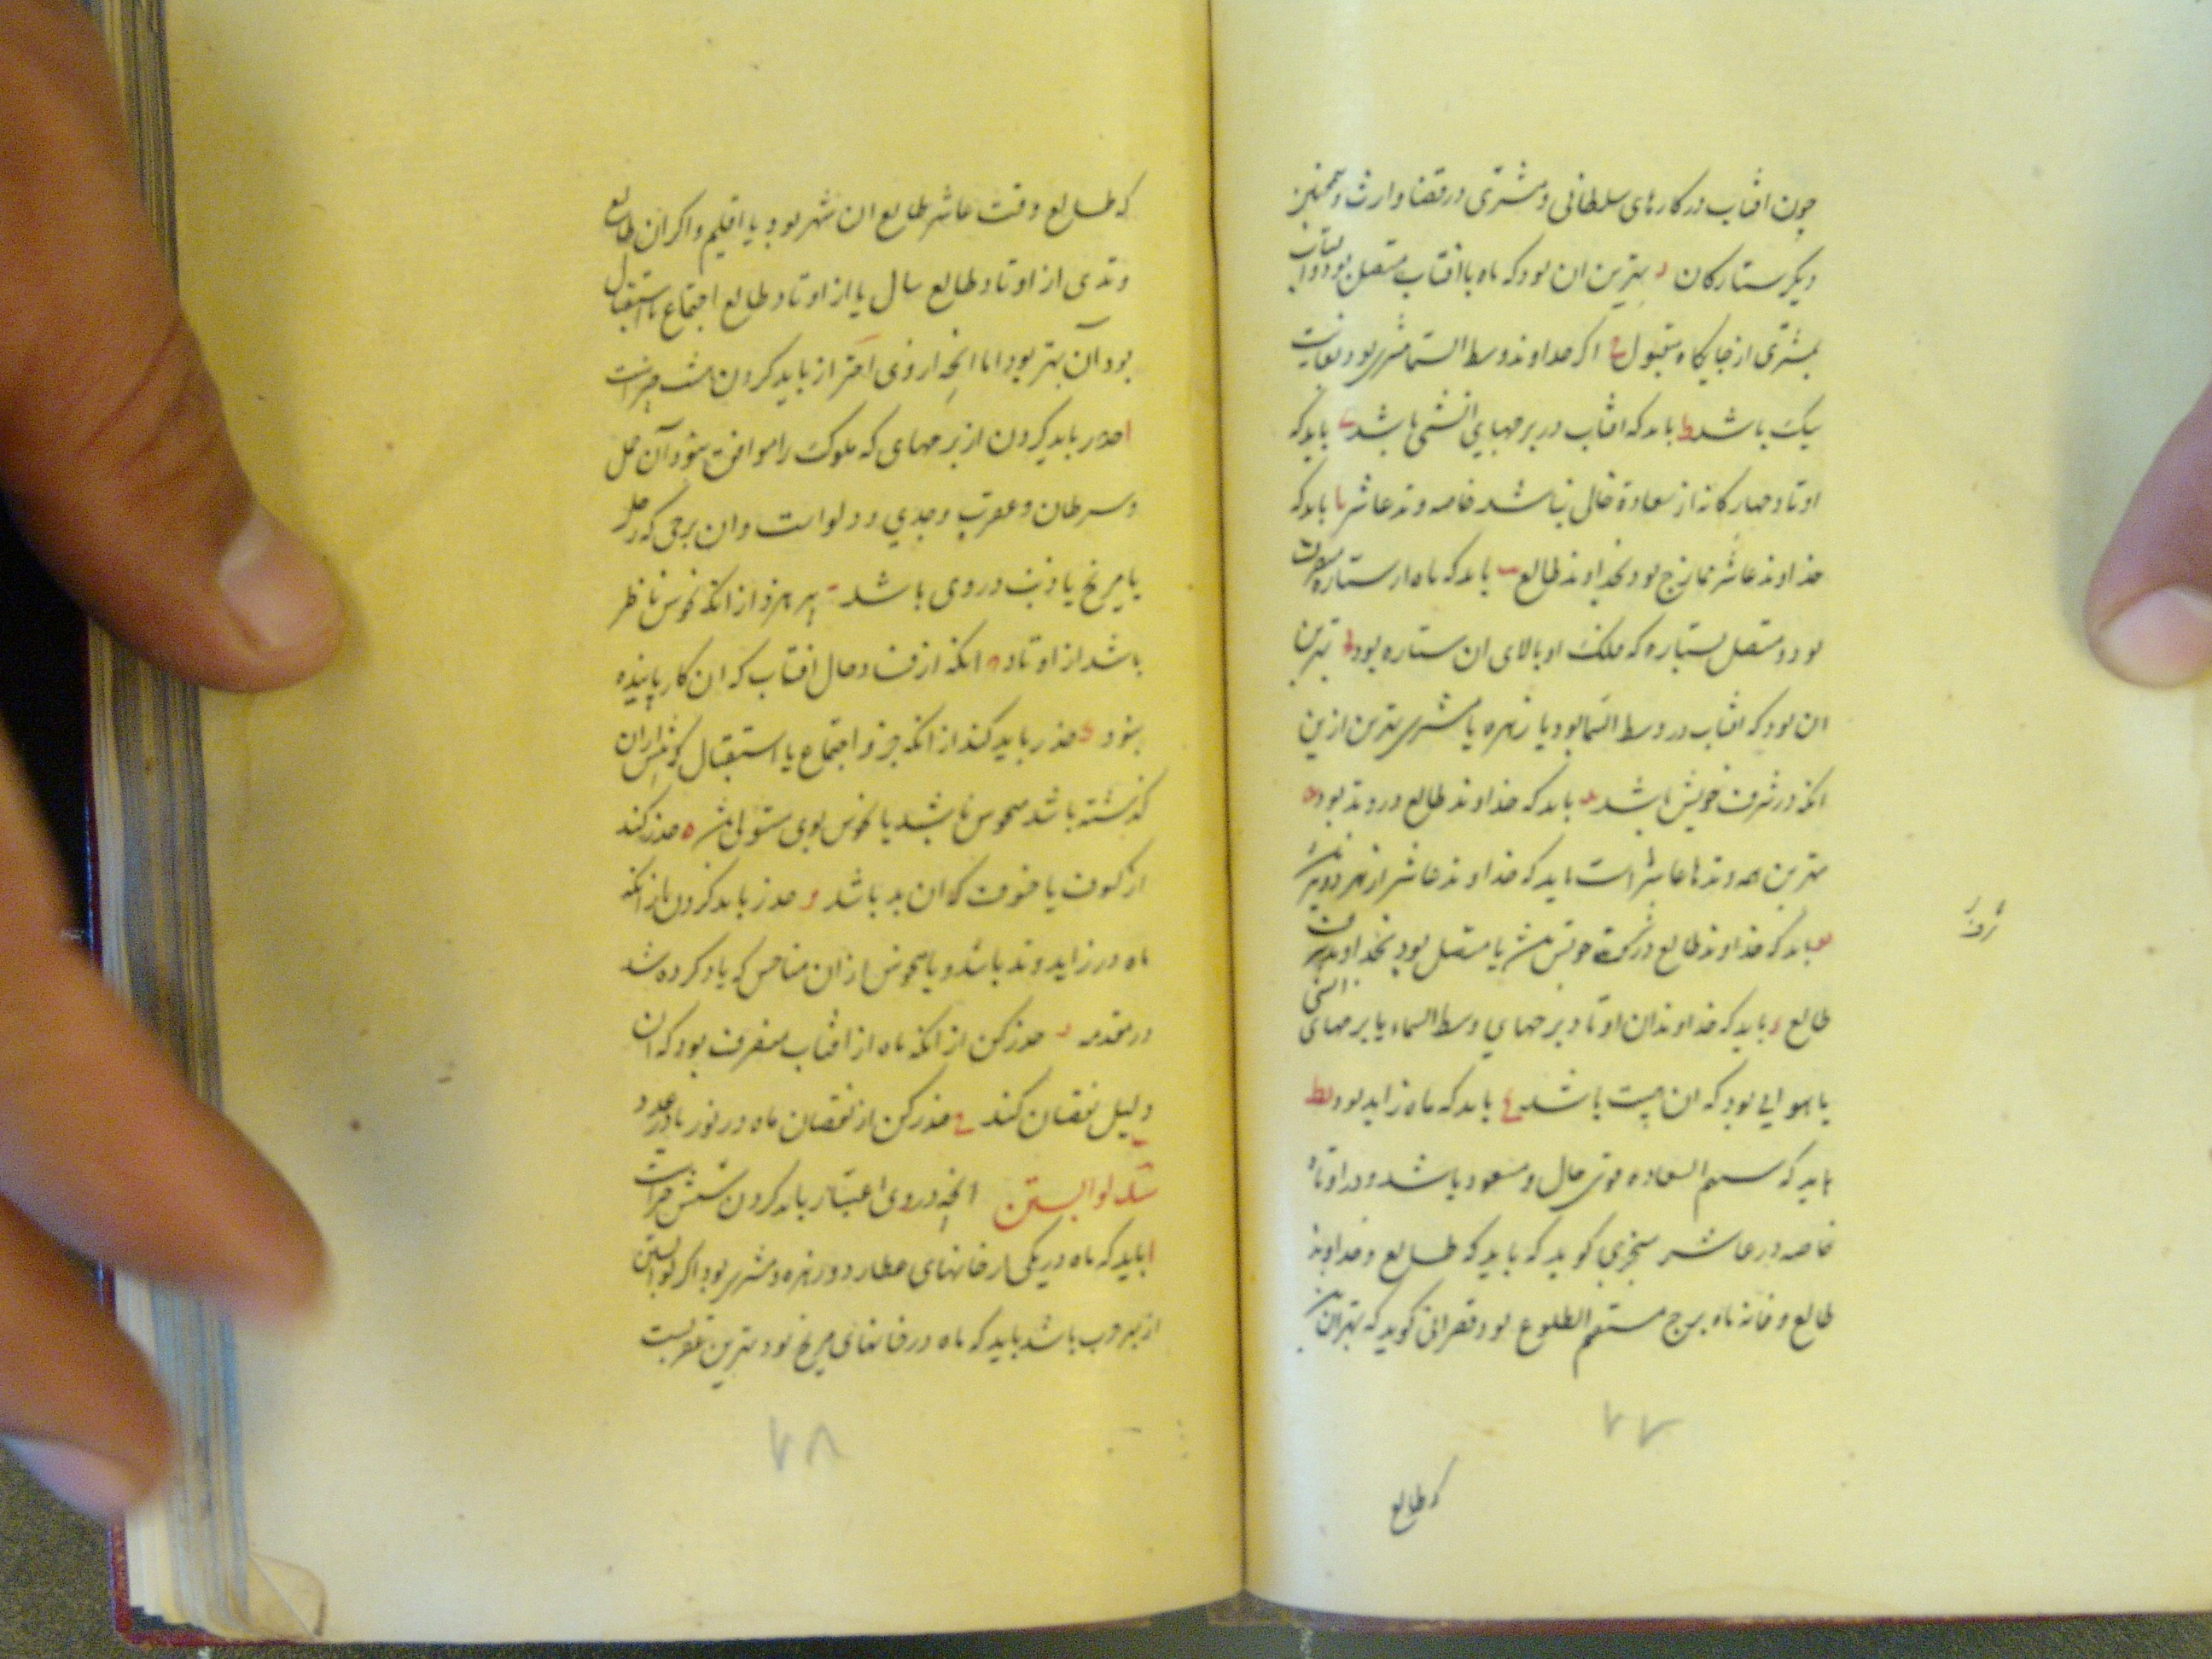 چون افتاب در کارهای سلطانی و مشتری در قضا و ارث و همچنین
دیکر ستارکان ر بهترین ان بود که ماه با افتاب متصل بود و افتاب
بمشتری از جایکاه مقبول ح اکر خداوند وسط السما مشتری بود بغایت
نیک باشد ط باید که افتاب در برجهای اتشی باشد ی باید که
اوتاد چهارکانه از سعادة خالی نباشد خاصه وتد عاشر یا باید که
خداوند عاشر ممازج بود بخداوند طالع یب باید که ماه از ستاره منصرف
بود و متصل بستاره که فلک او بالای ان ستاره بود بهترین
ان بود که افتاب در وسط السما بود یا زهره یا مشتری بهترین ازین
انکه در شرف خویش باشد ید باید که خداوند طالع در وتد بود
بهترین همه وتدها عاشر است باید که خداوند عاشر از
یو باید که خداوند طالع در خویش یا متصل بود بخداوند شرف
طالع باید که خداوندان اوتاد برجهای وسط السماء یا برجهای اتشی
یا هوایی بود که ان باشد باید که ماه زاید بود یط
باید که سهم السعاده قوی حال و مسعود باشد و در اوتاد
خاصه در عاشر سجزی کوید که باید که طالع و خداوند
طالع و خانه ماه برج مستقیم الطلوع بود قصرانی کوید که بهتر ان
۷۷
که طالع
که طالع وقت عاشر طالع ان شهر بود یا اقلیم و اکر ان طالع
وتدی از اوتاد طالع سال یا از اوتاد طالع اجتماع یا استقبال
بود آن بهتر بود اما انچه از وی احتراز باید کردن هشت چیز است
ا حذر باید کردن از برجهای که ملوک را موافق نبود و آن حمل
و سرطان و عقرب و جدی و دلو است و ان برجی که زحل
یا مریخ یا ذنب در وی باشد ب بپرهیزد از انکه نحوس ناظر
باشد از اوتاد ج انکه از فساد حال افتاب که ان کار پاینده
نبود د حذر باید کند از انکه جزو اجتماع یا استقبال که پیش از ان
کذشته باشد منحوس باشد یا نحوس بوی مستولی ه حذر کند
از کسوف یا خسوف که ان بد باشد و حذر باید کردن از انکه
ماه در زاید وتد باشد و یا منحوس از ان مناحس که یاد کرده شد
در مقدمه ر حذر کن از انکه ماه از افتاب منصرف بود که ان
دلیل نقصان کند ح حذر کن از نقصان ماه در نور یا در عدد
شد لوا بستن انچه در وی اعتبار باید کردن شش چیز است
ا باید که ماه در یکی از خانهای عطارد و زهره و مشتری بود اکر لوا بستن
از بهر حرب باشد باید که ماه در خانهای مریخ بود بهترین عقربست
۷۸